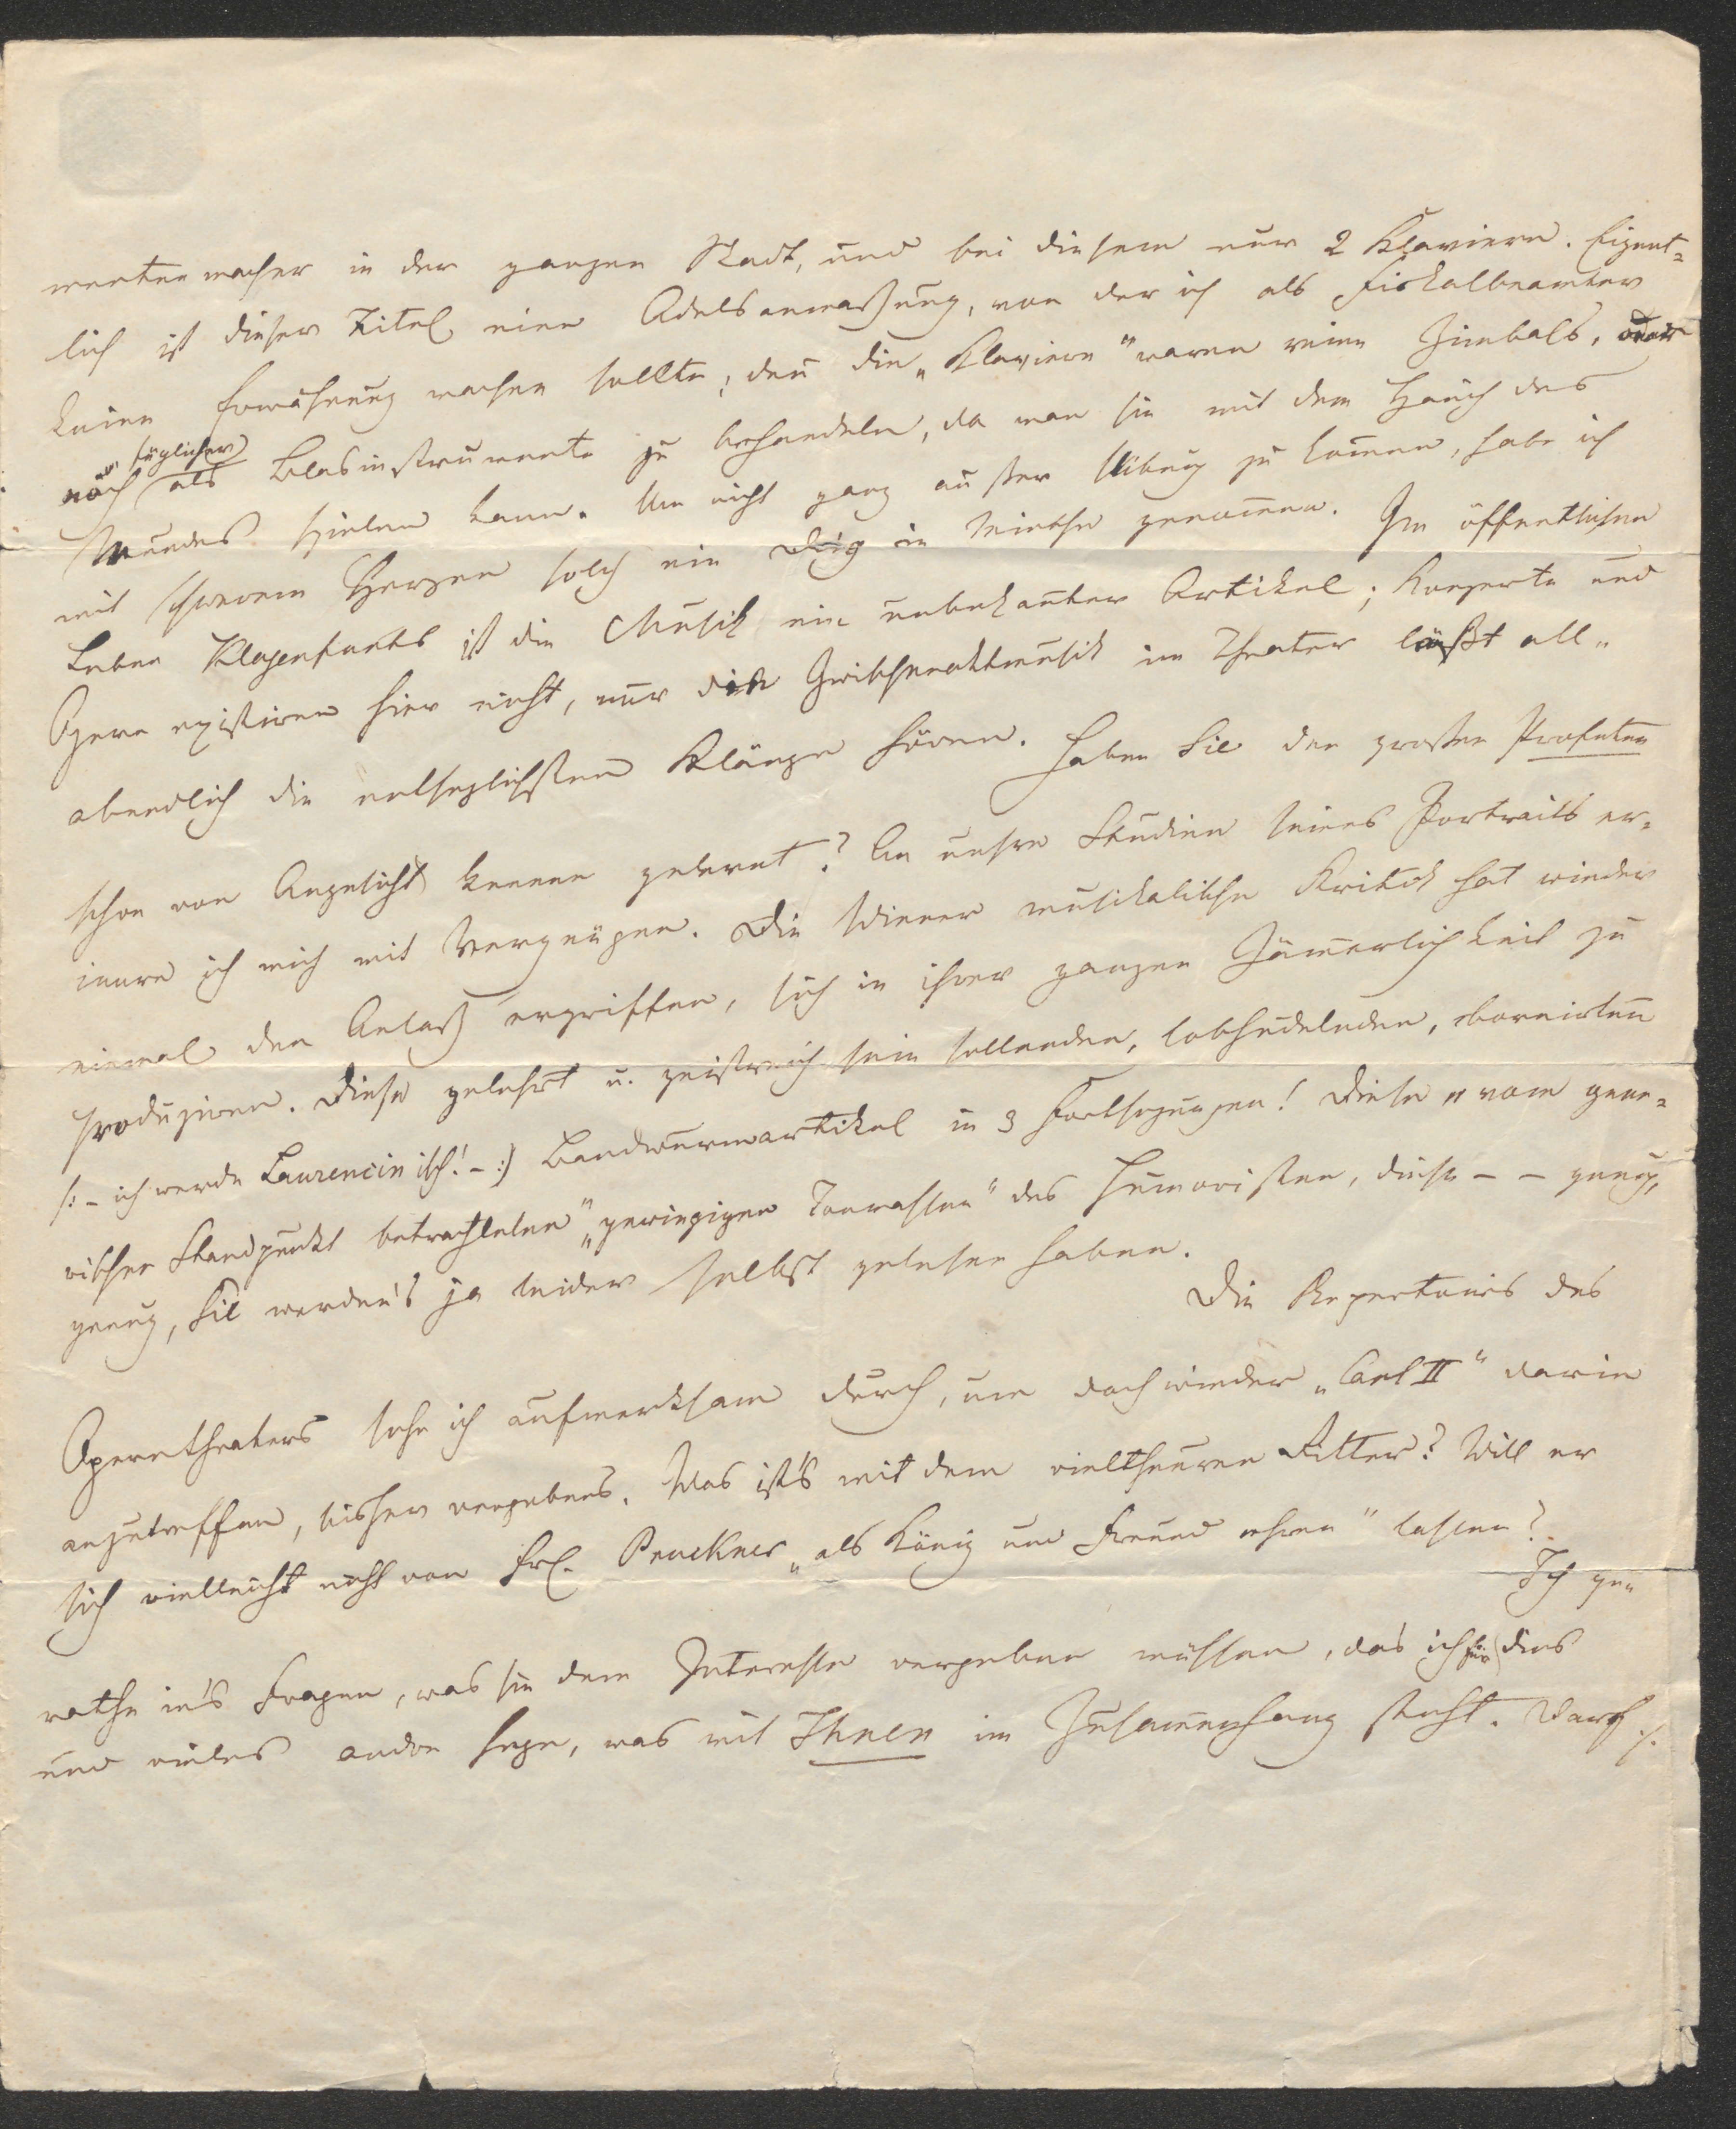 mentenmacher in der ganzen Stadt, und bei diesem nur 2 Klaviere. Eigent=
lich ist dieser Titel eine Adelsanmaßung, von der ich als Fiskalbeamter
keine Erwähnung machen sollte; den̅ die „Klaviere" waren reine Zimbals, oder
noch füglicher als Blasinstrumente zu behandeln, da man sie mit dem Hauch des
Mundes spielen kann. Um nicht ganz außer Übung zu kom̅en, habe ich
mit schwerem Herzen solch ein Ding in Miethe genom̅en. Im öffentlichen
Leben Klagenfurts ist die Musik ein unbekan̅ter Artikel; Konzerte und
Opern existiren hier nicht, nur die Zwischenaktmusik im Theater läßt all„
abendlich die entsezlichsten Klänge hören. Haben Sie den großen Profeten
schon von Angesicht kennen gelernt? An unsre Studien seines Portraits er„
innre ich mich mit Vergnügen. Die Wiener musikalische Kritik hat wieder
einmal den Anlaß ergriffen, sich in ihrer ganzen Jäm̅erlichkeit zu
produziren. Diese gelehrt u. geistreich sein sollenden, lobhudelnden, bornirten
/: – ich werde Laurencinisch! – :/ Bandwurmartikel in 3 Fortsezungen! Diese „vom gene=
rischen Standpunkt betrachteten" „gewinzigen Tonmassen" des Humoristen, diese – – genug,
genug, Sie werden's ja leider selbst gelesen haben.
Die Repertoirs des
Operntheaters sehe ich aufmerksam durch, um doch wieder „Carl II" darin
anzutreffen, bisher vergebens. Was ist's mit dem vieltheuren Ritter? Will er
sich vielleicht nicht von Frl. Bruckner „als König und Freund ehren" lassen?
Ich ge„
rathe in's Fragen, was Sie dem Interesse vergeben müssen, das ich für dies
und vieles andre hege, was mit Ihnen im Zusam̅enhang steht. Darf ./.